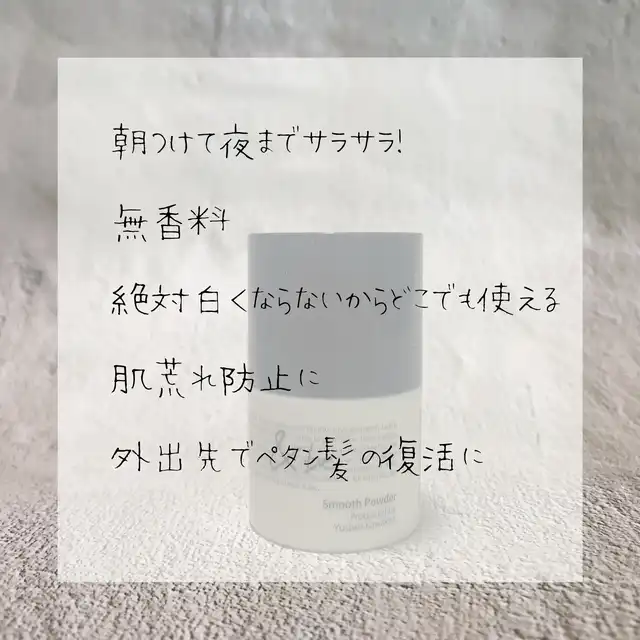 朝つけて夜までサラサラ!
無香料
絶対白くならないからどこでも使える
肌荒れ防止に
外出先でペタン髪の復活に
Smooth Powder